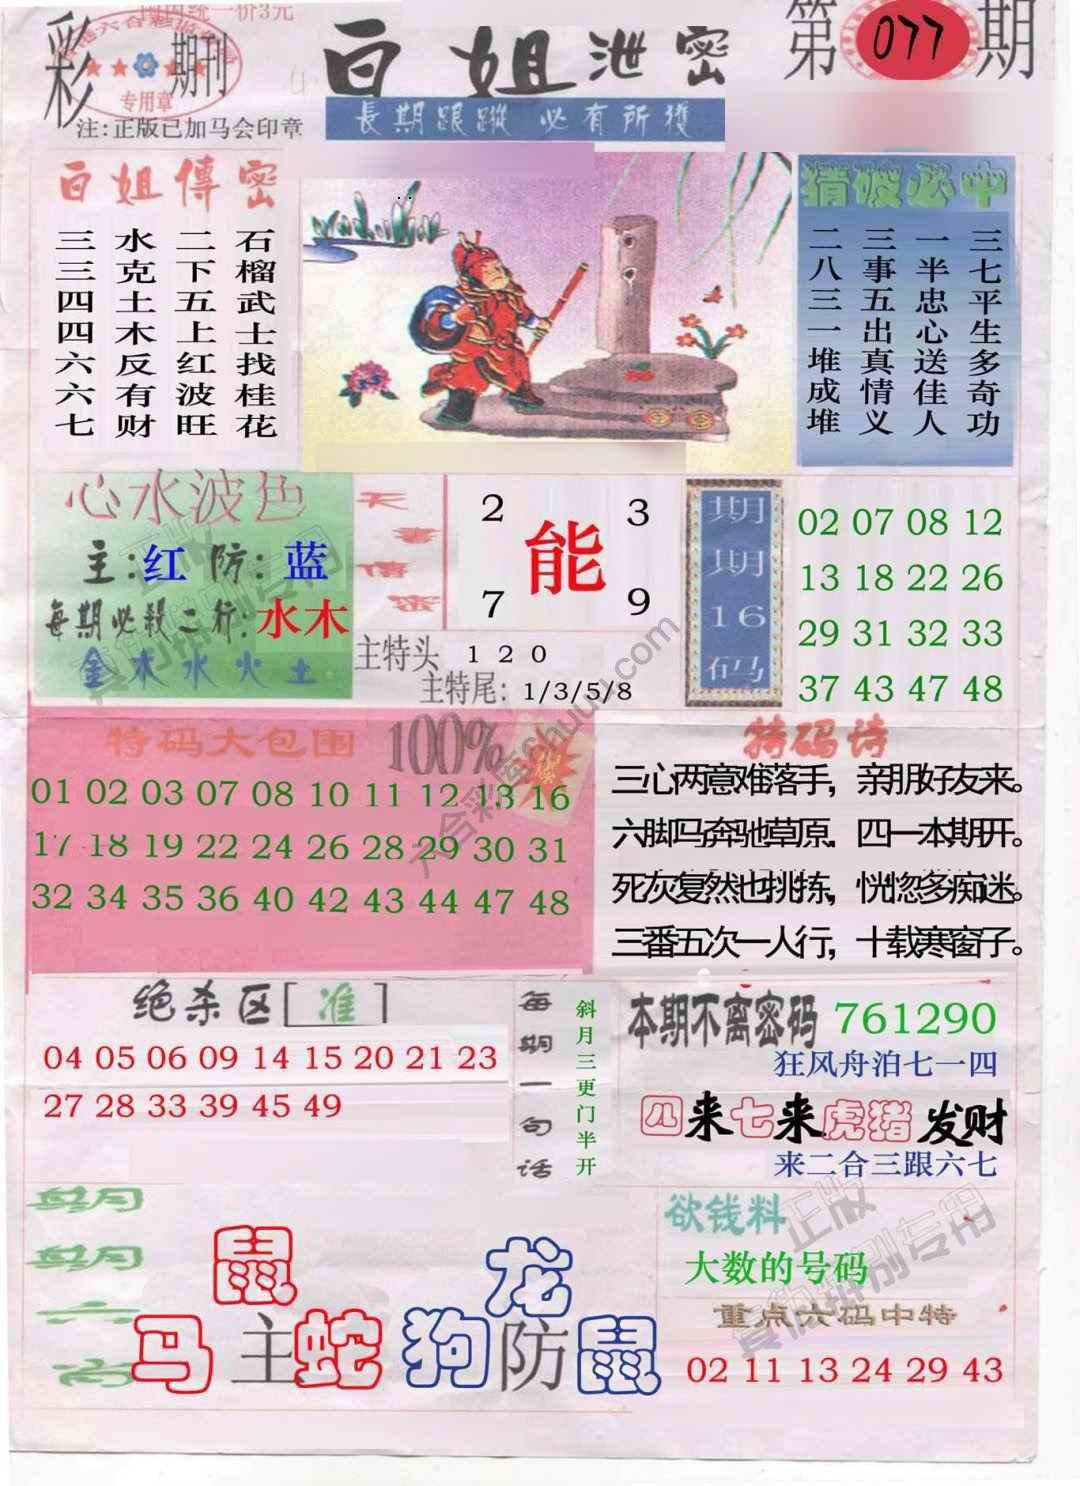 国内统一价3元
彩 期刊
专用章
注:正版已加马会印章
白姐泄密
長期跟蹤 必有所獲
第077期
白姐傳密
石榴武士找桂花
二下五上红波旺
水克土木反有财
三三四四六六七
猜破必中
三七平生多奇功
一半忠心送佳人
三事五出真情义
二八三一堆成堆
心水波色
主:红 防:蓝
每期必殺二行:水木
金木水火土
天書傳密
2 3
能
7 9
主特头 1 2 0
主特尾: 1/3/5/8
期期16码
02 07 08 12
13 18 22 26
29 31 32 33
37 43 47 48
特码大包围 100%
01 02 03 07 08 10 11 12 13 16
17 18 19 22 24 26 28 29 30 31
32 34 35 36 40 42 43 44 47 48
特码诗
三心两意难落手，亲朋好友来。
六脚马奔驰草原，四一本期开。
死灰复然也挑拣，恍惚多痴迷。
三番五次一人行，十载寒窗子。
绝杀区[准]
04 05 06 09 14 15 20 21 23
27 28 33 39 45 49
每期一句话
斜月三更门半开
本期不离密码 761290
狂风舟泊七一四
四来七来虎猪发财
来二合三跟六七
鼠
马主蛇
龙
狗防鼠
欲钱料
大数的号码
重点六码中特
02 11 13 24 29 43
六合彩库chuuu.com